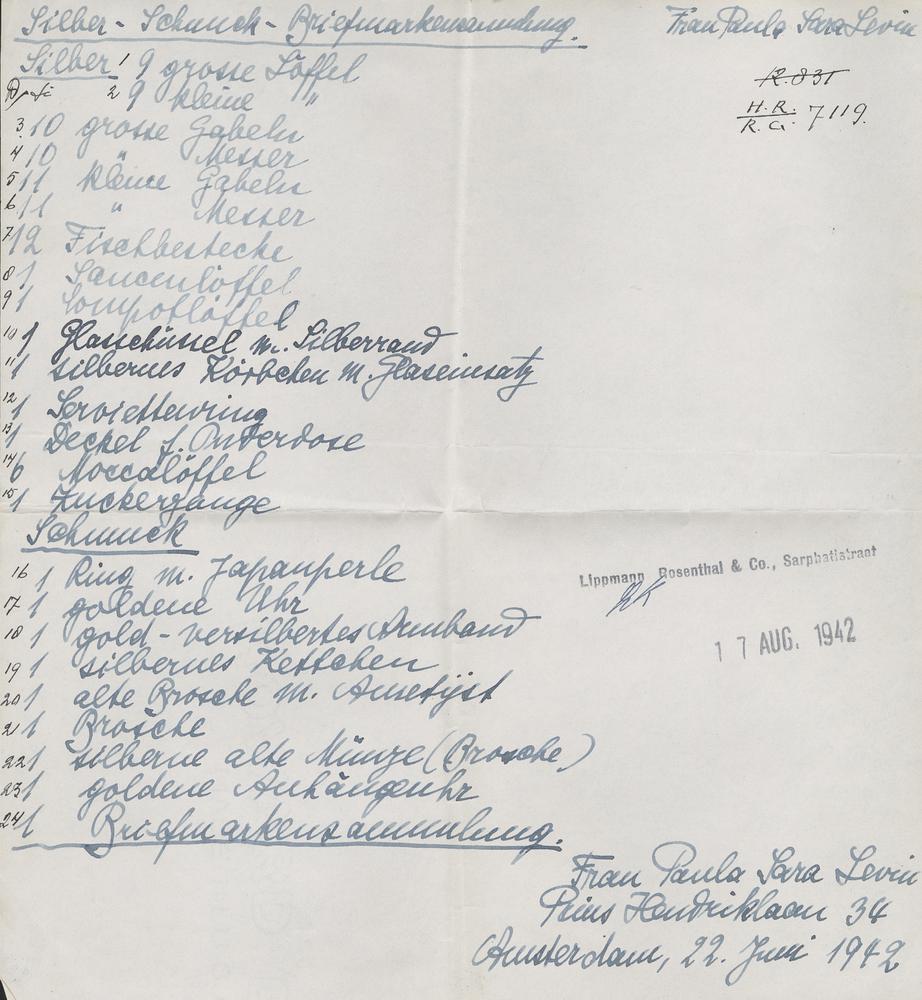 Silber - Schmuck - Briefmarkensammlung.
Frau Paula Sara Levin
R. 831
H.R.
R.G. 7119.
Silber 1 9 grosse Löffel
2 9 kleine "
3. 10 grosse Gabeln
4 10 " Messer
5 11 kleine Gabeln
6. 11 " Messer
7 12 Fischbestecke
8 1 Saucenlöffel
9 1 Compotlöffel
10 1 Glasschüssel m. Silberrand
11 1 silbernes Körbchen m. Glaseinsatz
12 1 Serviettenring
13 1 Deckel f. Puderdose
14 6 Moccalöffel
15 1 Zuckerzange
Schmuck
16 1 Ring m. Japanperle
17 1 goldene Uhr
18 1 gold-versilbertes Armband
19 1 silbernes Kettchen
20 1 alte Brosche m. Ametijst
21 1 Brosche
22 1 silberne alte Münze (Brosche)
23 1 goldene Anhängeuhr
24 1 Briefmarkensammlung.
Lippmann Rosenthal & Co., Sarphatistraat
17 AUG. 1942
Frau Paula Sara Levin
Prins Hendriklaan 34
Amsterdam, 22. Juni 1942